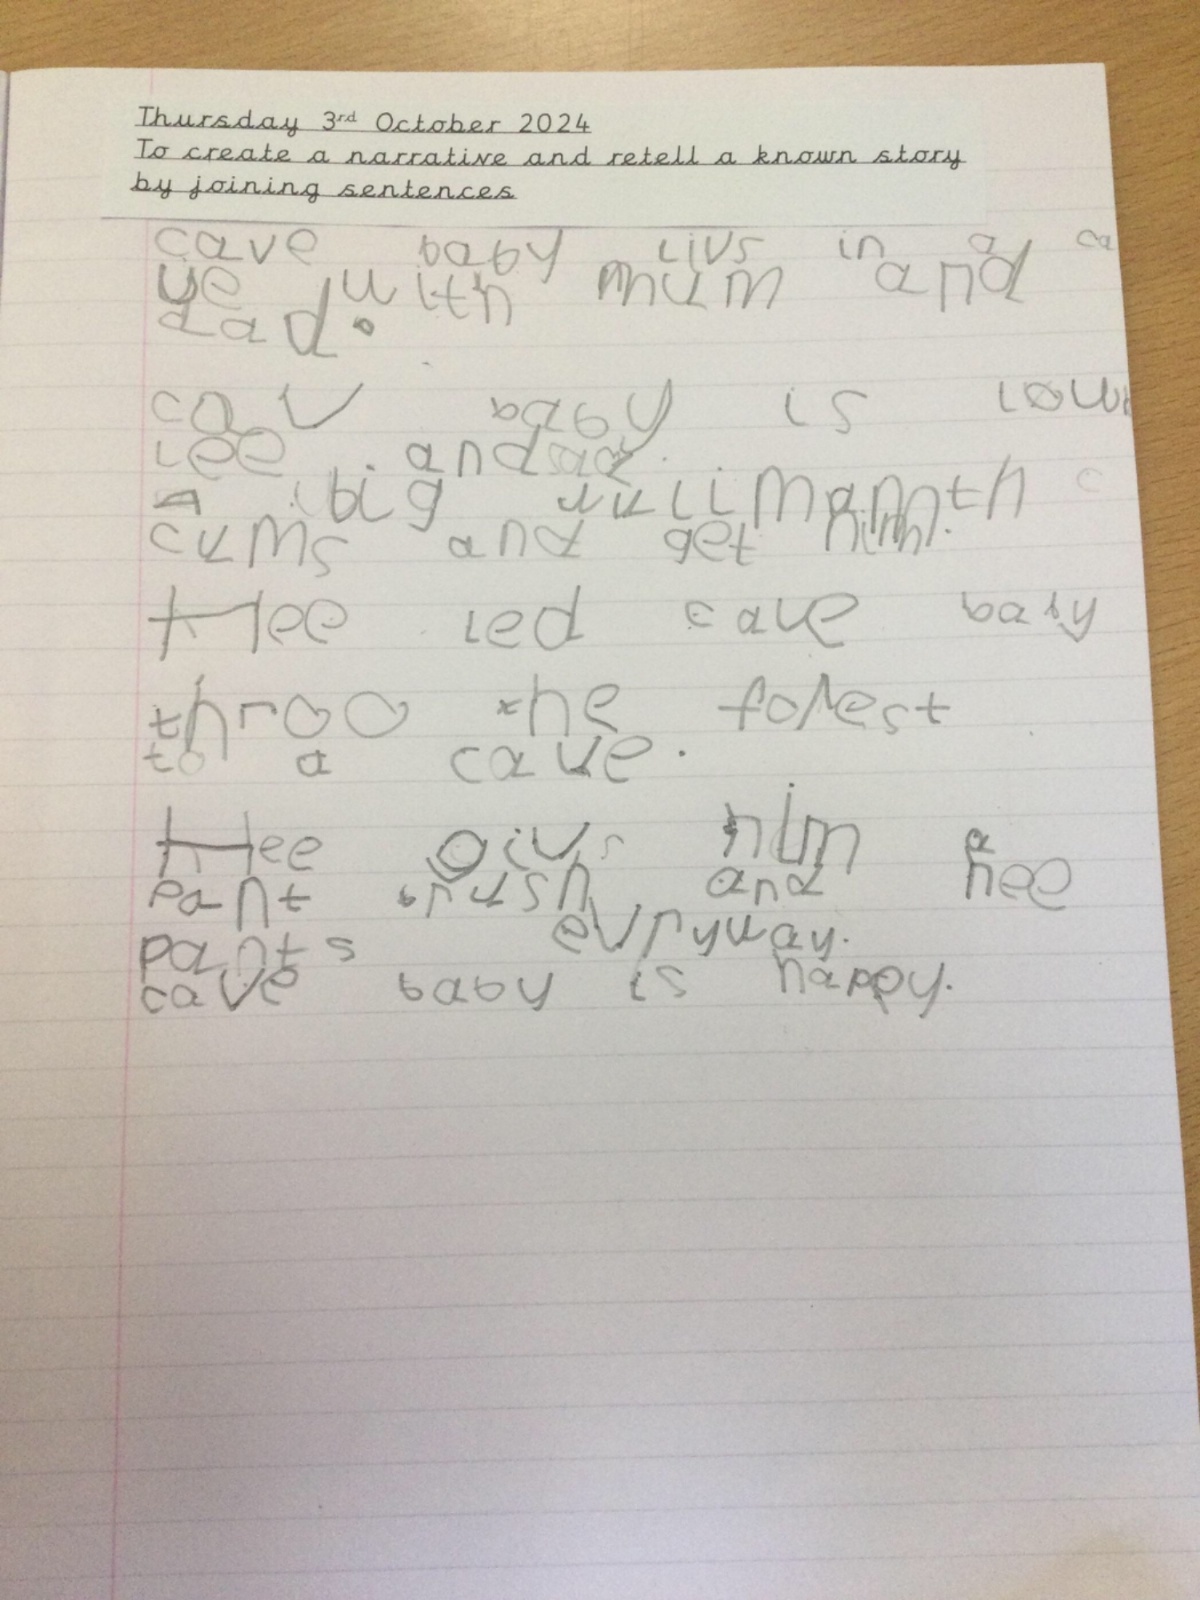 Thursday 3rd October 2024
To create a narrative and retell a known story
by joining sentences
cave baby livs in a ca
ve with mum and
dad.
cav baby is lown
lee and sad.
A big
cums and get him.
Hee led cave baby
throo the forest
to a cave.
Hee givs him a
pant brush and hee
pants evryway.
cave baby is happy.